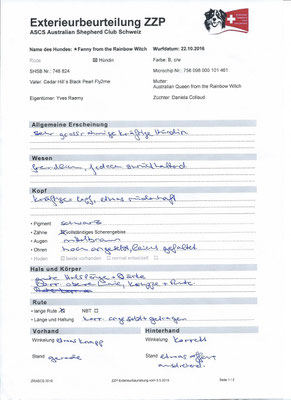 Exterieurbeurteilung ZZP
ASCS Australian Shepherd Club Schweiz
Name des Hundes: Fanny from the Rainbow Witch Wurfdatum: 22.10.2016
Rüde Hündin Farbe: B, r/w
SHSB Nr.: 748 824 Microchip Nr.: 756 098 000 101 461
Vater: Cedar Hill's Black Pearl Fly2me Mutter:
Australian Queen from the Rainbow Witch
Eigentümer: Yves Raemy Züchter: Daniela Collaud
Allgemeine Erscheinung
Sehr kräftige Hündin
Wesen
jedoch zurückhaltend
Kopf
kräftiger Kopf, etwas
Pigment schwarz
Zähne vollständiges Scherengebiss
Augen mittelbraun
Ohren hoch angesetzt, leicht gefaltet
Hoden beide vorhanden normal entwickelt
Hals und Körper
gute Halslänge + Stärke
Korr. obere Linie, Kruppe + Rute
Rute
lange Rute NBT
Länge und Haltung korr. angesetzt getragen
Vorhand Hinterhand
Winkelung etwas knapp Winkelung korrekt
Stand gerade Stand etwas
ausdrehend
ZRASCS 2016 ZZP-Exterieurbeurteilung vom Seite 1 / 2